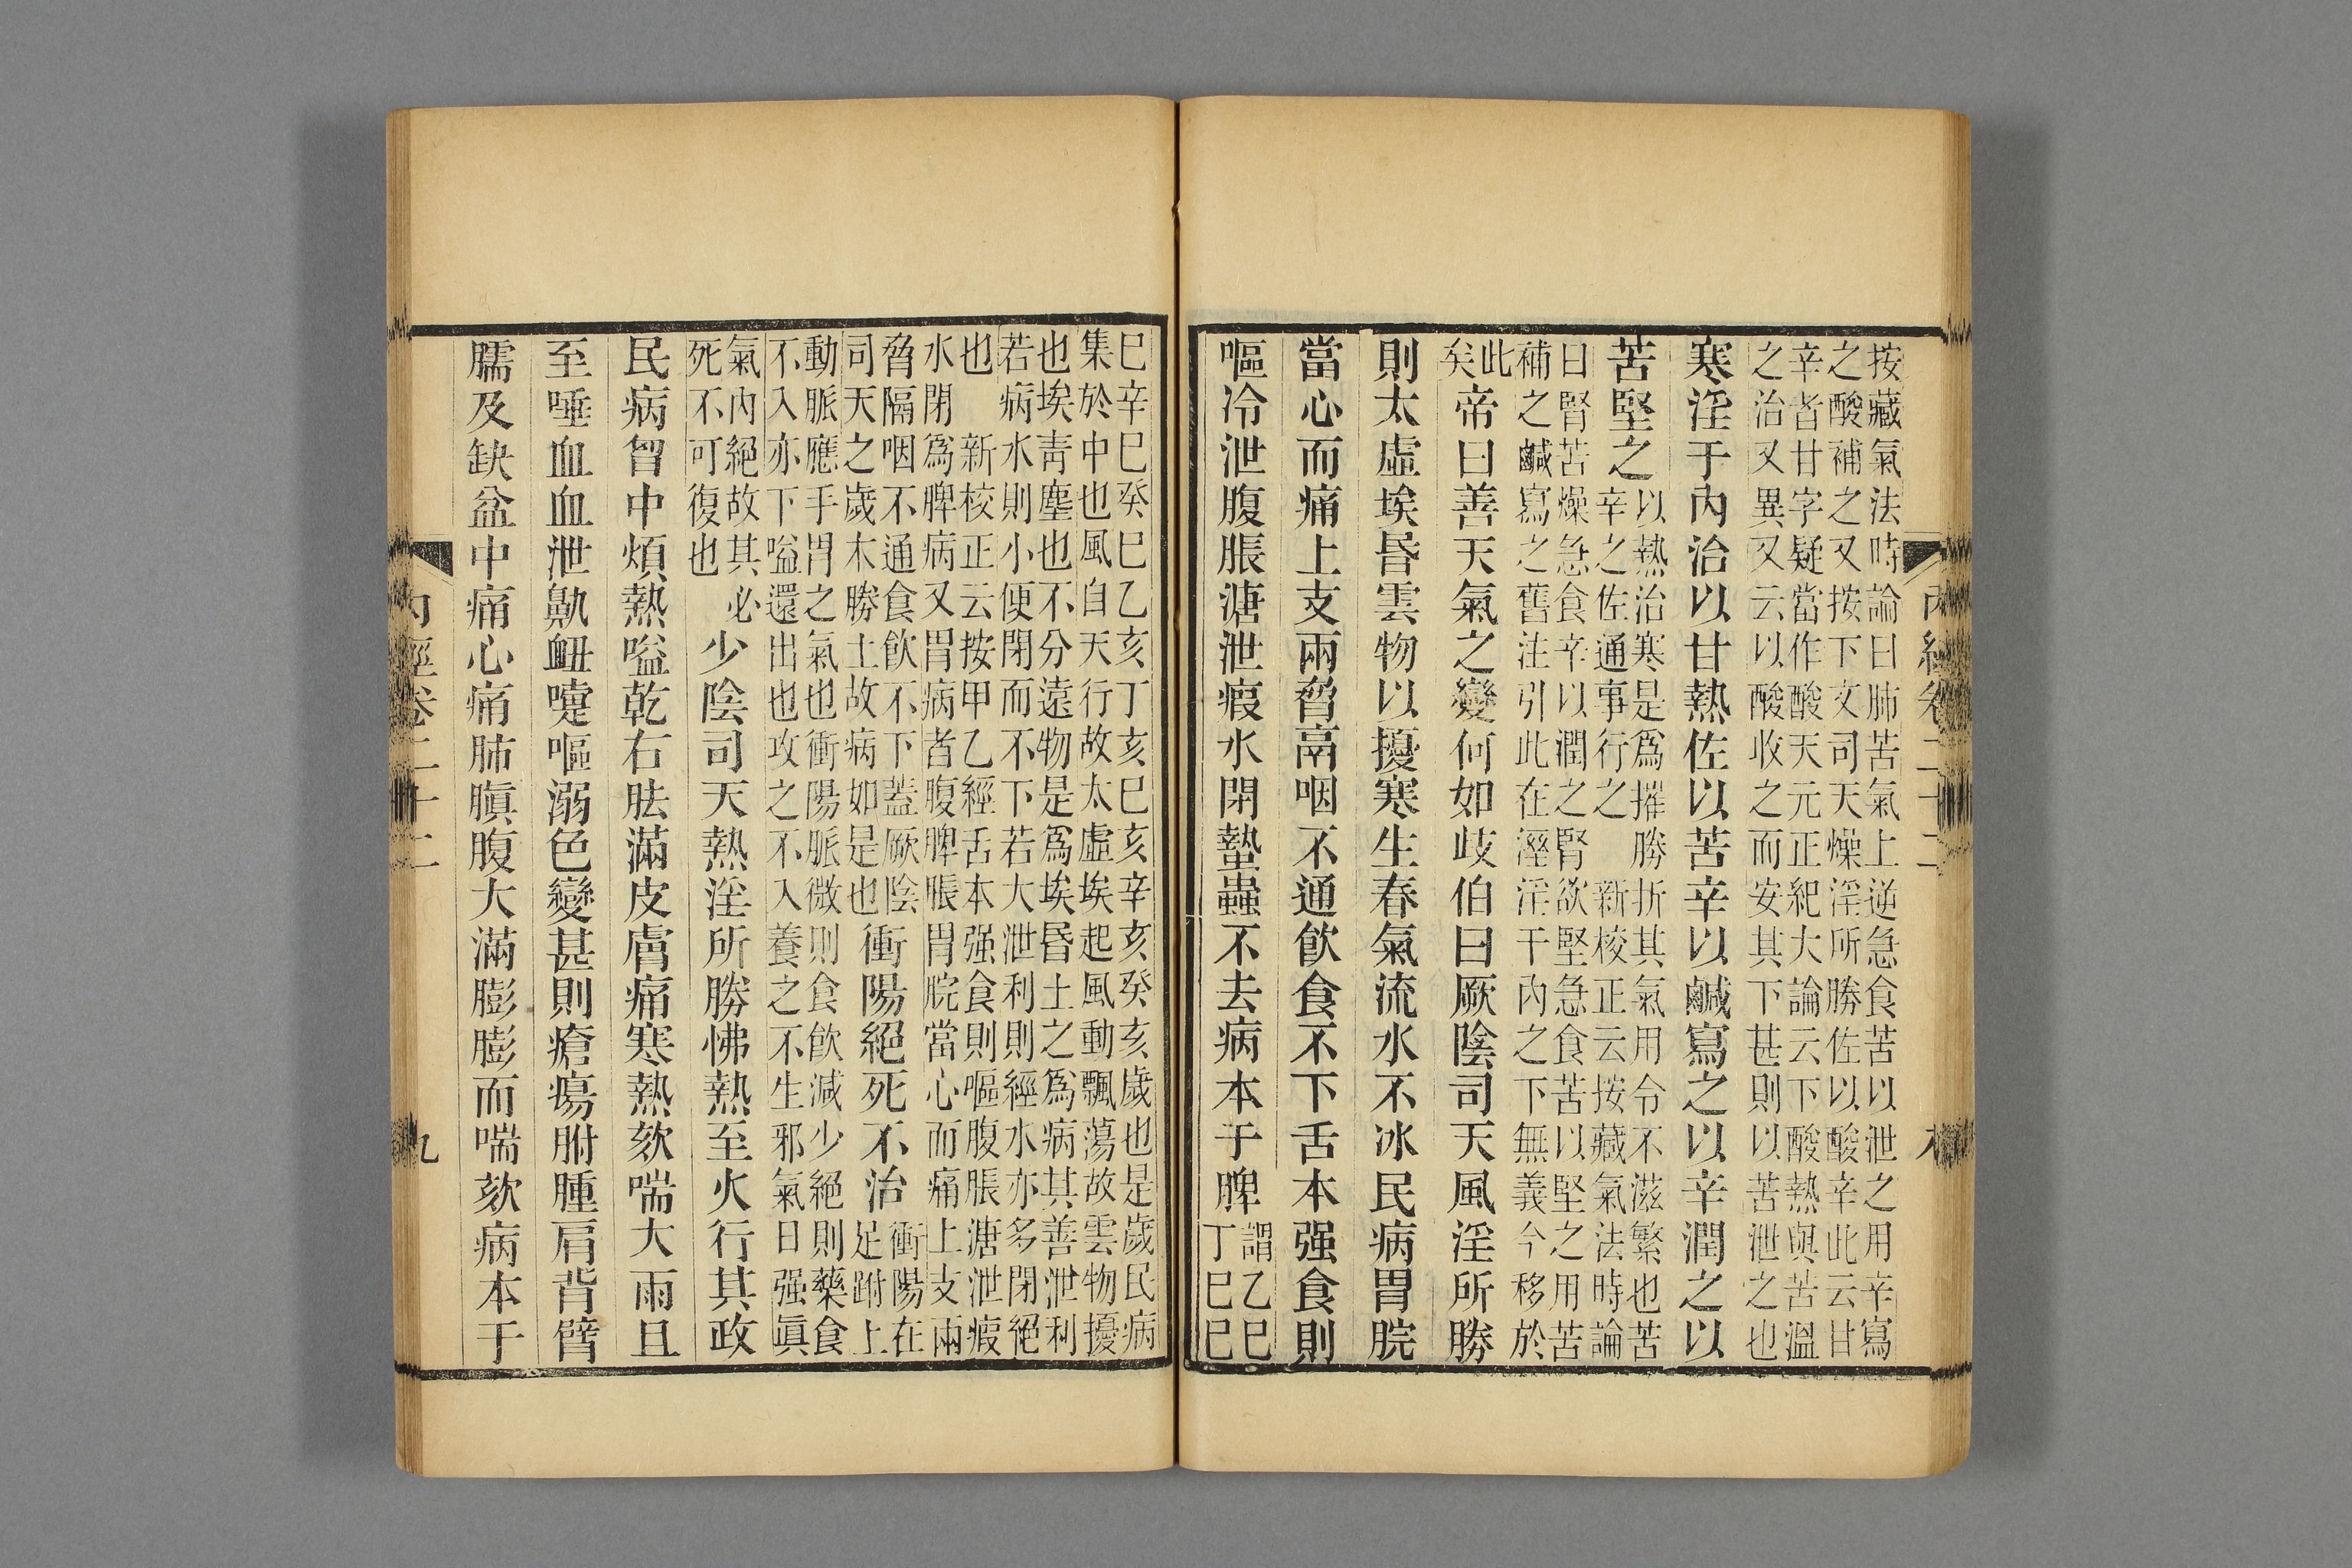 按藏氣法時論曰肺苦氣上逆急食苦以泄之用辛寫
之酸補之又按下文司天燥淫所勝佐以酸辛此云甘
辛者甘字疑當作酸天元正紀大論云下酸熱與苦溫
之治又異又云以酸收之而安其下甚則以苦泄之也
寒淫于內治以甘熱佐以苦辛以鹹寫之以辛潤之以
苦堅之
以熱治寒是爲摧勝折其氣用令不滋繁也苦
辛之佐通事行之 新校正云按藏氣法時論
曰腎苦燥急食辛以潤之腎欲堅急食苦以堅之用苦
補之鹹寫之舊注引此在溼淫于內之下無義今移於
此
矣
帝曰善天氣之變何如歧伯曰厥陰司天風淫所勝
則太虛埃昬雲物以擾寒生春氣流水不冰民病胃脘
當心而痛上支兩脅鬲咽不通飲食不下舌本强食則
嘔冷泄腹脹溏泄瘕水閉蟄蟲不去病本于脾
謂乙巳
丁巳巳
巳辛巳癸巳乙亥丁亥巳亥辛亥癸亥歲也是歲民病
集於中也風自天行故太虛埃起風動飄蕩故雲物擾
也埃靑塵也不分遠物是爲埃昬土之爲病其善泄利
若病水則小便閉而不下若大泄利則經水亦多閉絕
也 新校正云按甲乙經舌本强食則嘔腹脹溏泄瘕
水閉爲脾病又胃病者腹脾脹胃脘當心而痛上支兩
脅隔咽不通食飲不下蓋厥陰
司天之歲木勝土故病如是也
衝陽絕死不治
衝陽在
足跗上
動脈應手胃之氣也衝陽脈微則食飲減少絕則藥食
不入亦下嗌還出也攻之不入養之不生邪氣日强眞
氣內絕故其必
死不可復也
少陰司天熱淫所勝怫熱至火行其政
民病胷中煩熱嗌乾右胠滿皮膚痛寒熱欬喘大雨且
至唾血血泄鼽衄嚏嘔溺色變甚則瘡瘍胕腫肩背臂
臑及缺盆中痛心痛肺䐜腹大滿膨膨而喘欬病本于
內經卷二十二
九